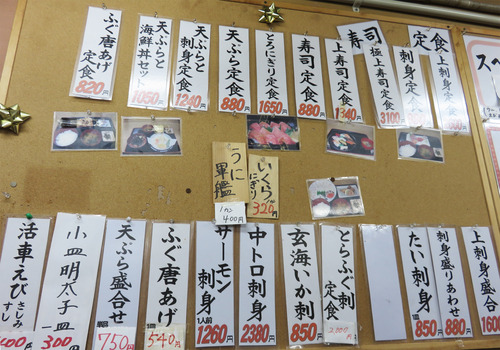 ふぐ唐あげ
定食
820円
天ぷらと
海鮮丼セット
1050円
天ぷらと
刺身定食
1240円
天ぷら定食
880円
とろにぎり定食
1650円
寿司定食
880円
上寿司定食
1340円
寿司
極上寿司定食
3100円
刺身定食
定食
上刺身定食
スペ
うに
軍艦
1カン
400円
いくら
にぎり
320円
活車えび
さしみ
すし
小皿明太子一皿
300
天ぷら盛合せ
750円
ふぐ唐あげ
540円
サーモン
刺身
1人前
1260円
中トロ刺身
2380円
玄海いか刺
850円
とらふぐ刺
定食
たい刺身
850円
刺身盛りあわせ
880円
上刺身盛
1600